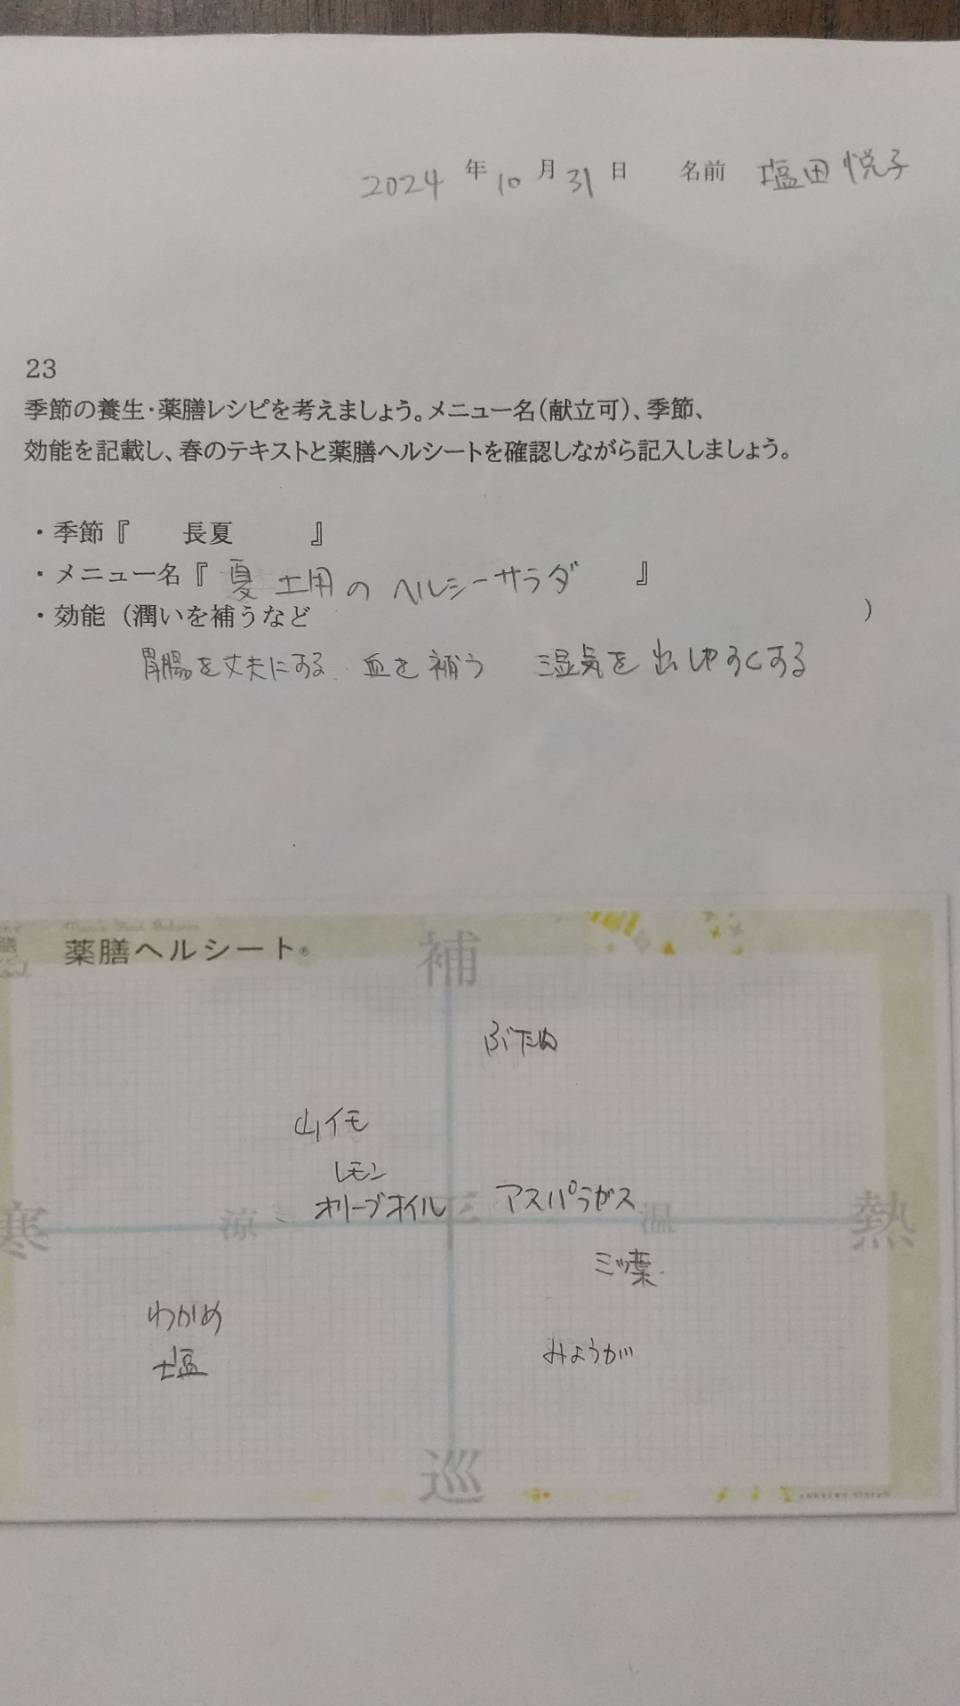 2024 年 10 月 31 日 名前 塩田 悦子
23
季節の養生・薬膳レシピを考えましょう。メニュー名(献立可)、季節、
効能を記載し、春のテキストと薬膳ヘルシートを確認しながら記入しましょう。
・季節『 長夏 』
・メニュー名『 夏土用の ヘルシーサラダ 』
・効能 (潤いを補うなど )
胃腸を丈夫にする. 血を補う 湿気を出しやすくする
薬膳ヘルシート®
補
ぶた肉
山イモ
レモン
オリーブオイル アスパラガス
寒 涼 平 温 熱
三ッ葉
わかめ
みょうが
塩
巡